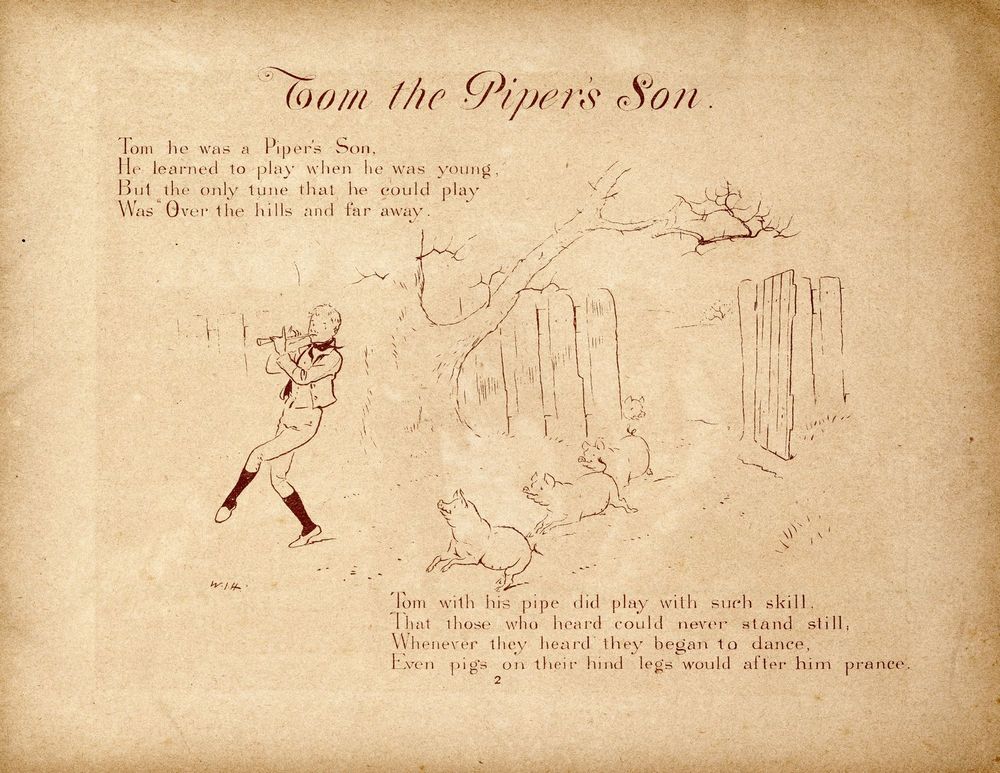 Tom the Piper's Son.
Tom he was a Piper's Son,
He learned to play when he was young,
But the only tune that he could play
Was "Over the hills and far away.
W.J.H.
Tom with his pipe did play with such skill,
That those who heard could never stand still;
Whenever they heard they began to dance,
Even pigs on their hind legs would after him prance.
2